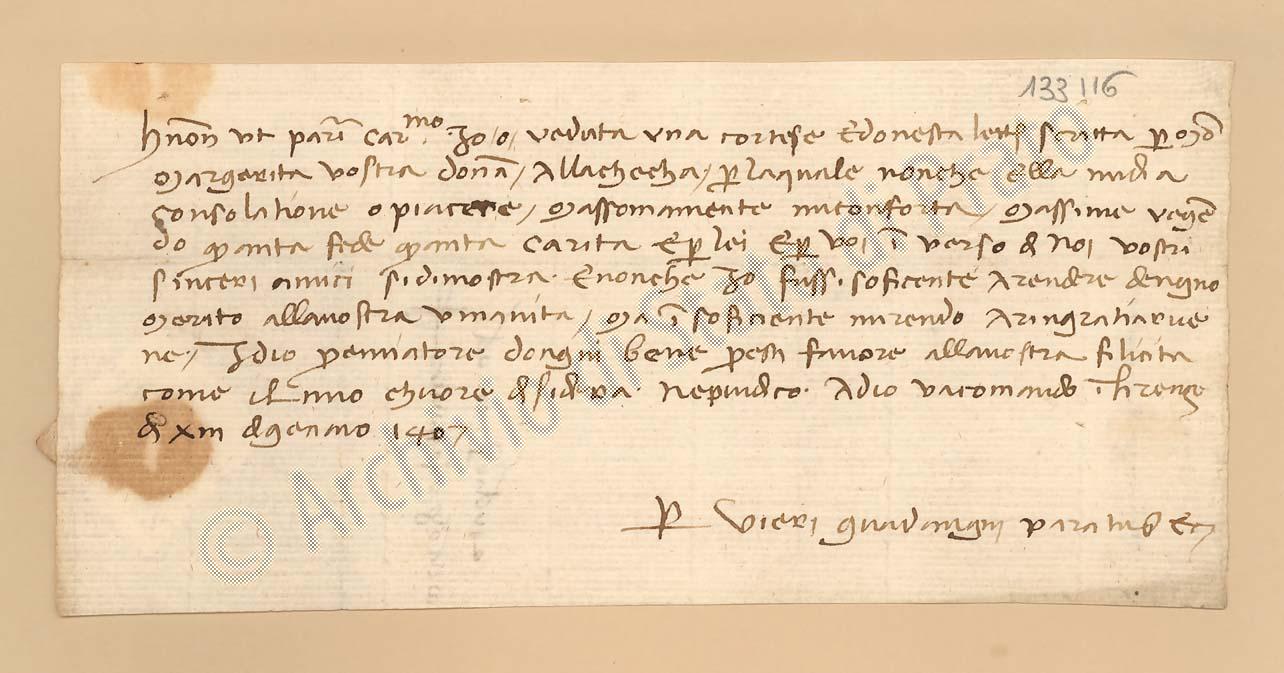 133 116
hnon ut patri carmo. Io / o / veduta una cortese e donesta lettera scritta per mona
Margerita vostra donna / alla checha / per la quale nonche ella midia
consolatione o piacere / ma sommamente mi conforta / massime vegen
do quanta fede quanta carita e per lei e per voi in verso di noi vostri
sinceri amici si dimostra. E nonche Io fussi soficente a rendere dengno
merito alla vostra umanita / ma insoficiente mi rendo a ringratiarve
ne / Idio premiatore dongni bene presti favore alla vostra filicita
come il mio chuore disidera. Ne piu dico. A dio vacomando. In firenze
di xiii di gennaio 1407
Per Vieri guadangni paratus Ec
© Archivio di Stato di Prato